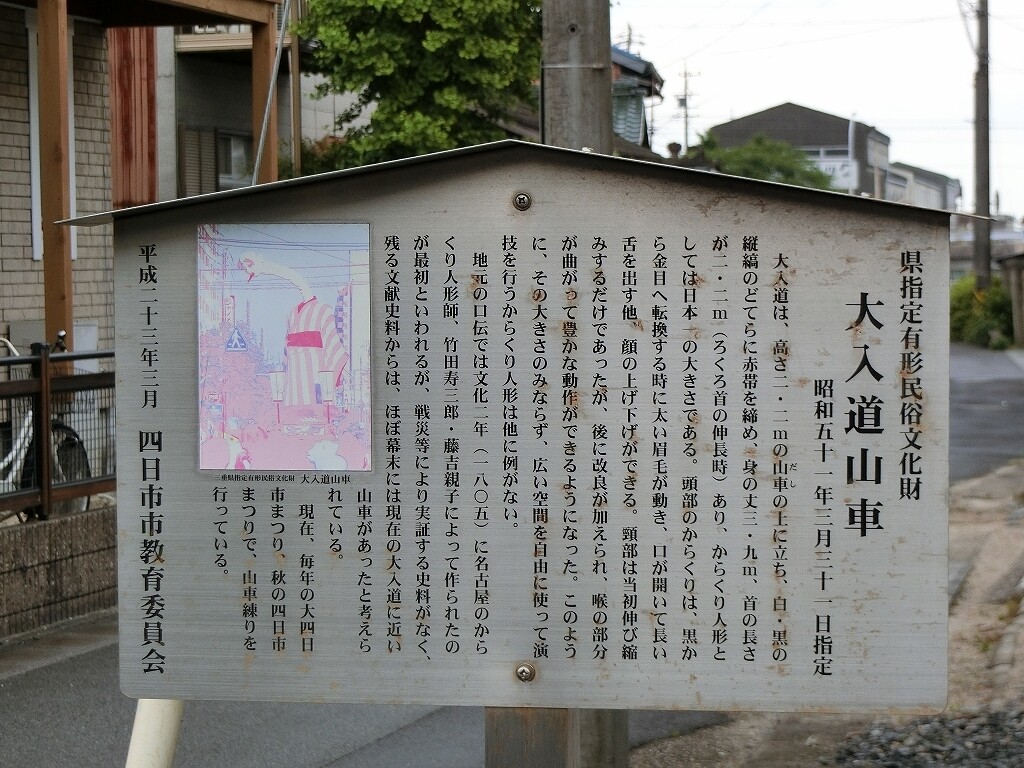 県指定有形民俗文化財
大入道山車
昭和五十一年三月三十一日指定
大入道は、高さ二・二mの山車の上に立ち、白・黒の
だし
縦縞のどてらに赤帯を締め、身の丈三・九m、首の長さ
が二・二m(ろくろ首の伸長時)あり、からくり人形と
しては日本一の大きさである。頭部のからくりは、黒か
ら金目へ転換する時に太い眉毛が動き、口が開いて長い
舌を出す他、顔の上げ下げができる。頸部は当初伸び縮
みするだけであったが、後に改良が加えられ、喉の部分
が曲がって豊かな動作ができるようになった。このよう
に、その大きさのみならず、広い空間を自由に使って演
技を行うからくり人形は他に例がない。
地元の口伝では文化二年(一八〇五)に名古屋のから
くり人形師、竹田寿三郎・藤吉親子によって作られたの
が最初といわれるが、戦災等により実証する史料がなく、
残る文献史料からは、ほぼ幕末には現在の大入道に近い
山車があったと考えら
れている。
現在、毎年の大四日
市まつり、秋の四日市
まつりで、山車練りを
行っている。
三重県指定有形民俗文化財 大入道山車
平成二十三年三月 四日市市教育委員会